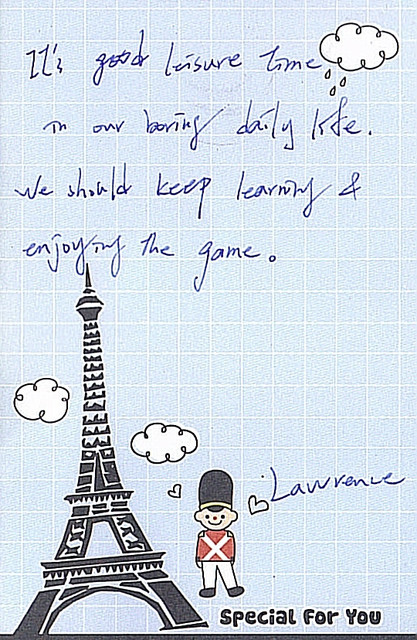 It's good leisure time
in our boring daily life.
We should keep learning &
enjoying the game.
Lawrence
Special For You